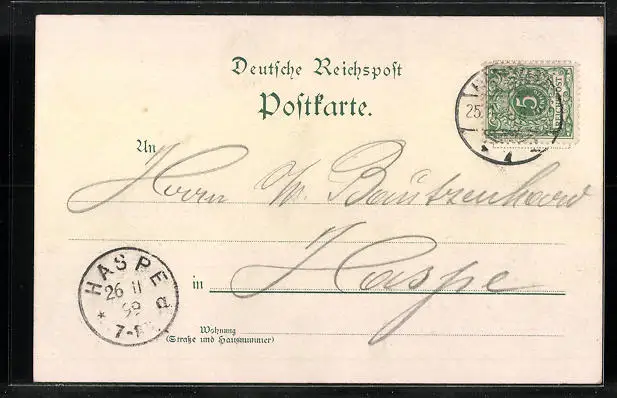 Deutsche Reichspost
Postkarte.
25.
5
REICHSPOST
An
Herrn W. Bautzenhard
in Haspe
HASPE
26 11
99
7-8
Wohnung
(Straße und Hausnummer)